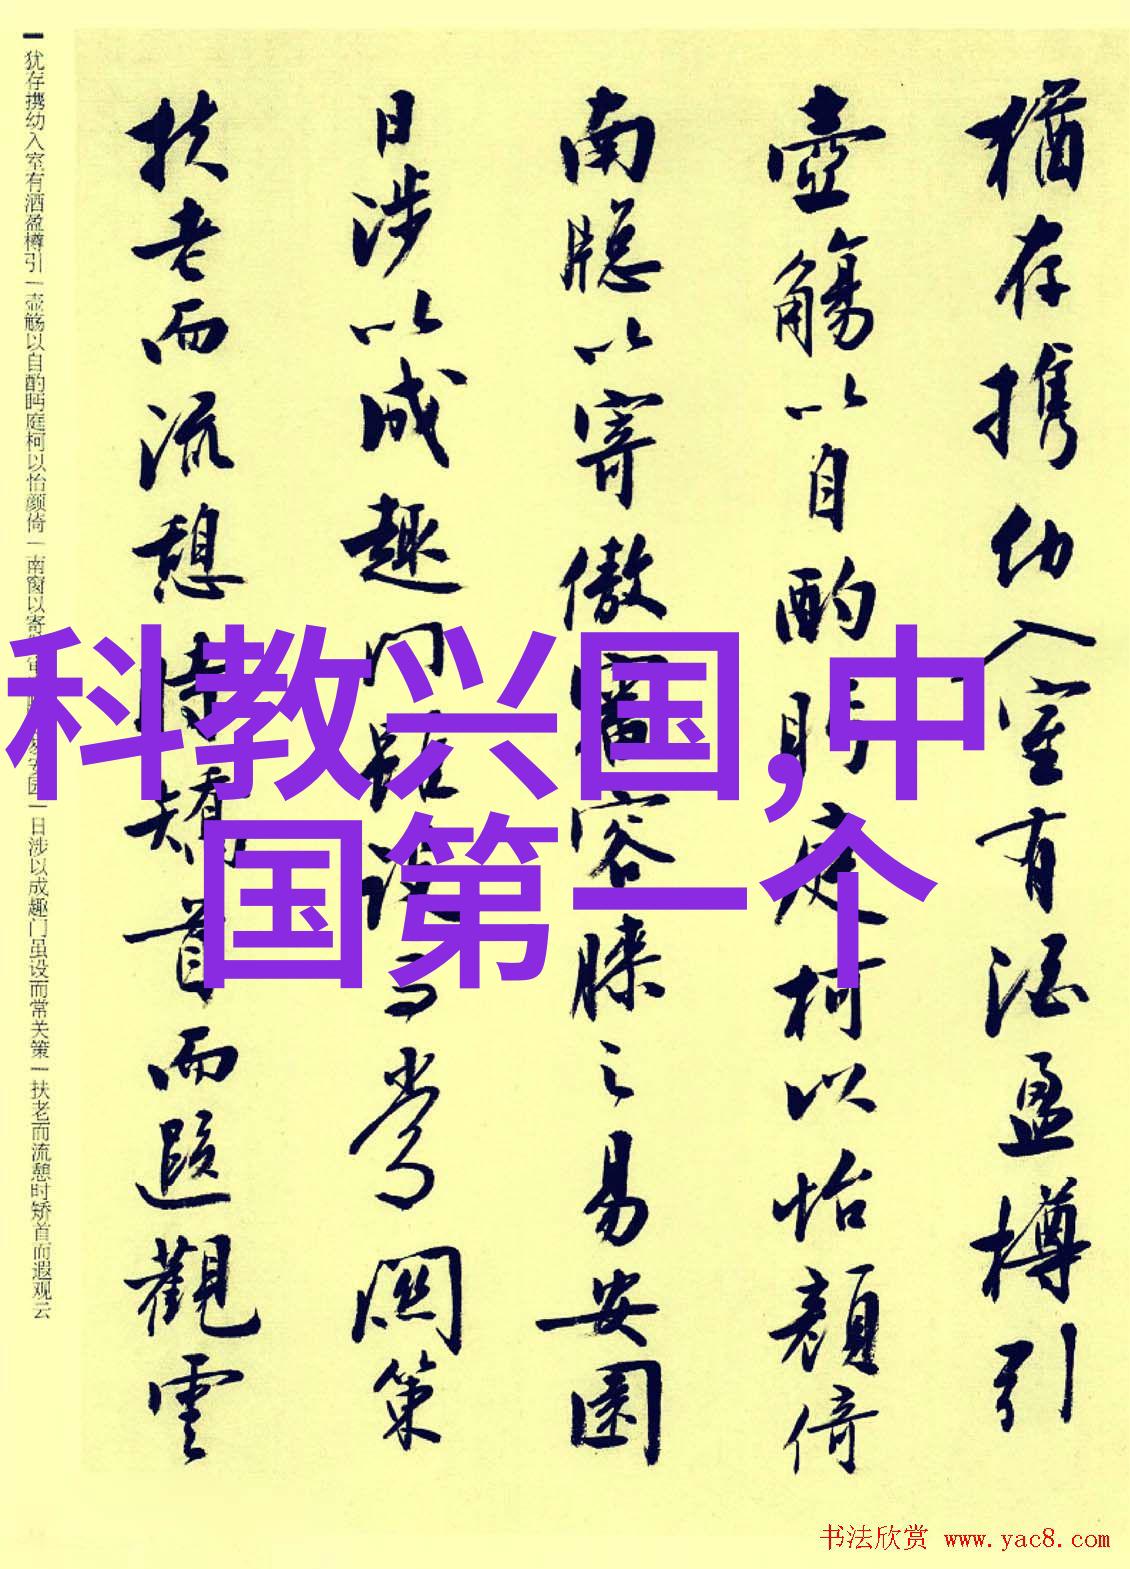 猶存攜幼入室有酒盈樽引
壺觴以自酌眄庭柯以怡顏倚
南牕以寄傲審容膝之易安園
日涉以成趣門雖設而常關策
扶老而流憩時矯首而遐觀雲
犹存携幼入室有酒盈樽引一壶觞以自酌眄庭柯以怡颜倚一南窗以寄傲审容膝之易安园一日涉以成趣门虽设而常关策一扶老而流憩时矫首而遐观云
科教兴国,中
国第一个
书法欣赏 www.yac8.com